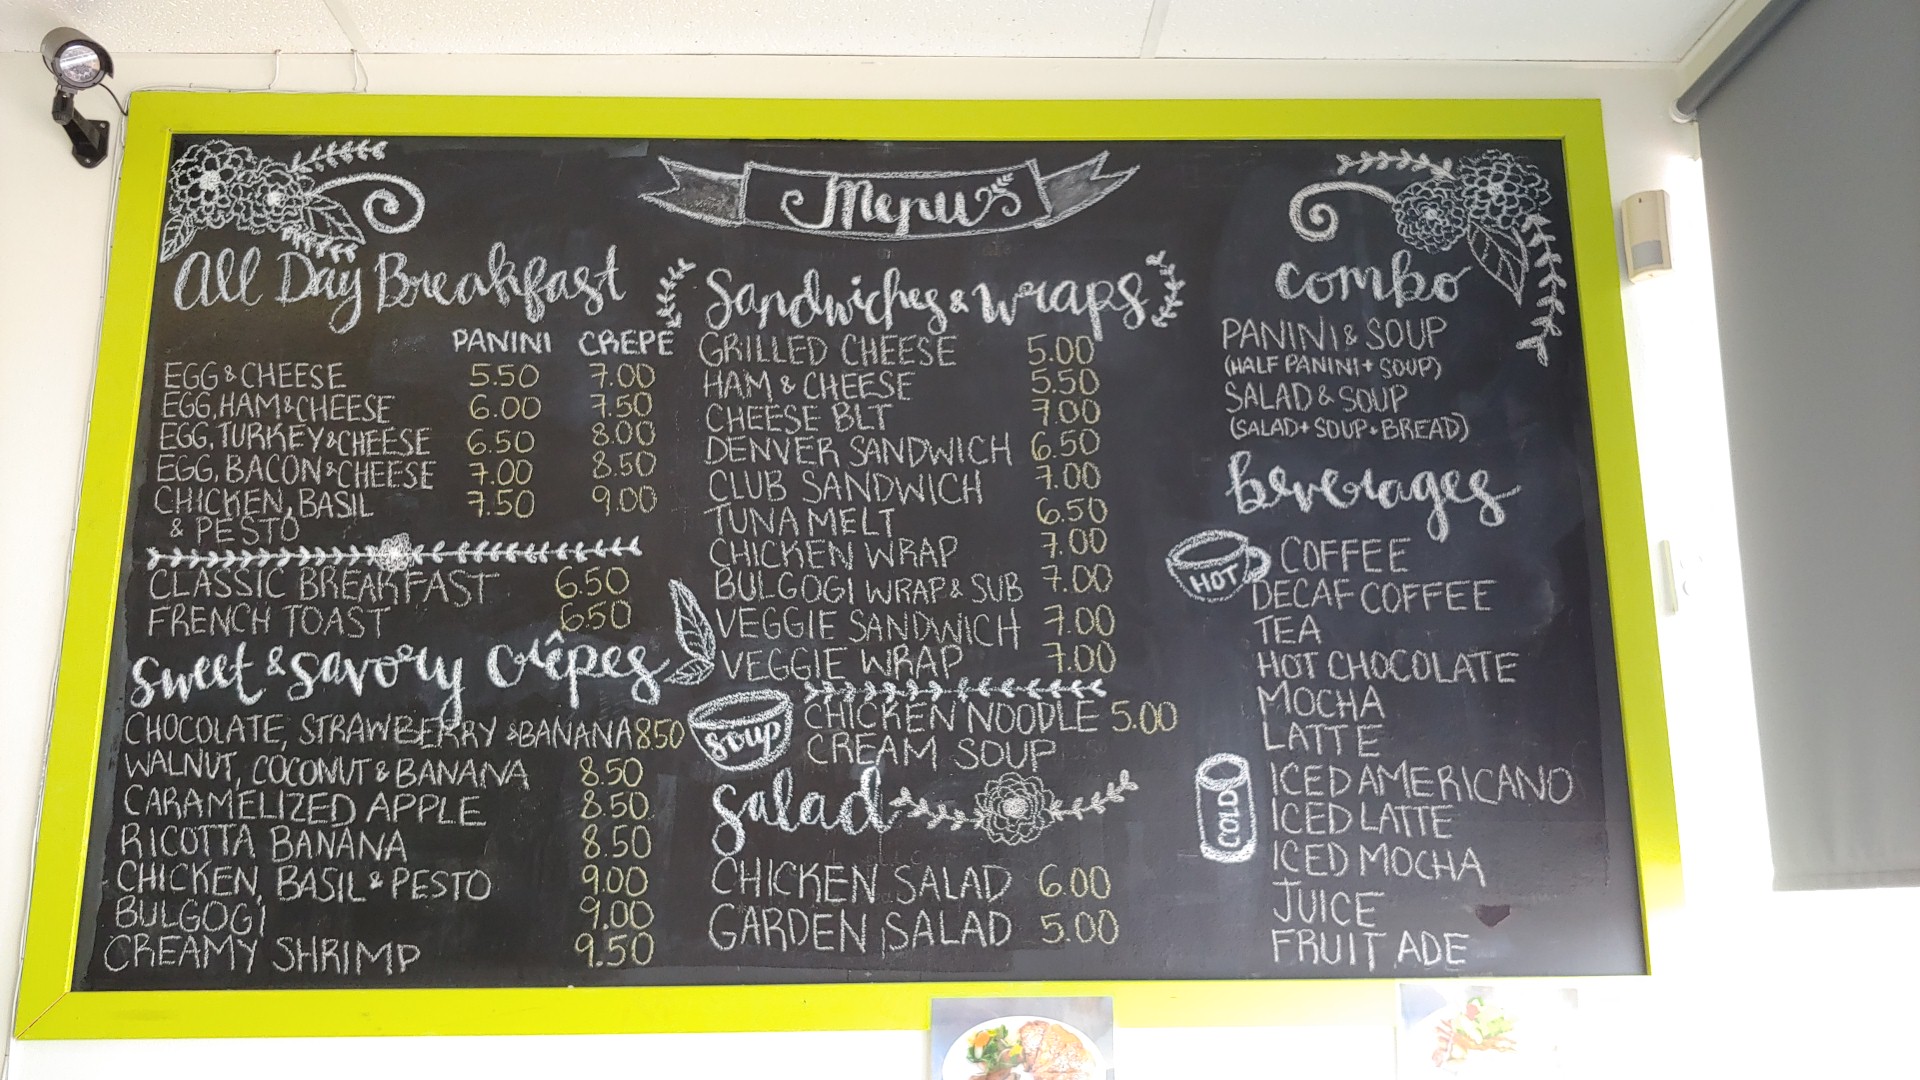 Menu
All Day Breakfast
PANINI CREPE
EGG & CHEESE 5.50 7.00
EGG, HAM & CHEESE 6.00 7.50
EGG, TURKEY & CHEESE 6.50 8.00
EGG, BACON & CHEESE 7.00 8.50
CHICKEN, BASIL 7.50 9.00
& PESTO
CLASSIC BREAKFAST 6.50
FRENCH TOAST 6.50
Sweet & Savory Crêpes
CHOCOLATE, STRAWBERRY & BANANA 8.50
WALNUT, COCONUT & BANANA 8.50
CARAMELIZED APPLE 8.50
RICOTTA BANANA 8.50
CHICKEN, BASIL & PESTO 9.00
BULGOGI 9.00
CREAMY SHRIMP 9.50
Sandwiches & Wraps
GRILLED CHEESE 5.00
HAM & CHEESE 5.50
CHEESE BLT 7.00
DENVER SANDWICH 6.50
CLUB SANDWICH 7.00
TUNA MELT 6.50
CHICKEN WRAP 7.00
BULGOGI WRAP & SUB 7.00
VEGGIE SANDWICH 7.00
VEGGIE WRAP 7.00
Soup
CHICKEN NOODLE 5.00
CREAM SOUP
Salad
CHICKEN SALAD 6.00
GARDEN SALAD 5.00
Combo
PANINI & SOUP
(HALF PANINI + SOUP)
SALAD & SOUP
(SALAD + SOUP + BREAD)
Beverages
HOT
COFFEE
DECAF COFFEE
TEA
HOT CHOCOLATE
MOCHA
LATTE
COLD
ICED AMERICANO
ICED LATTE
ICED MOCHA
JUICE
FRUIT ADE